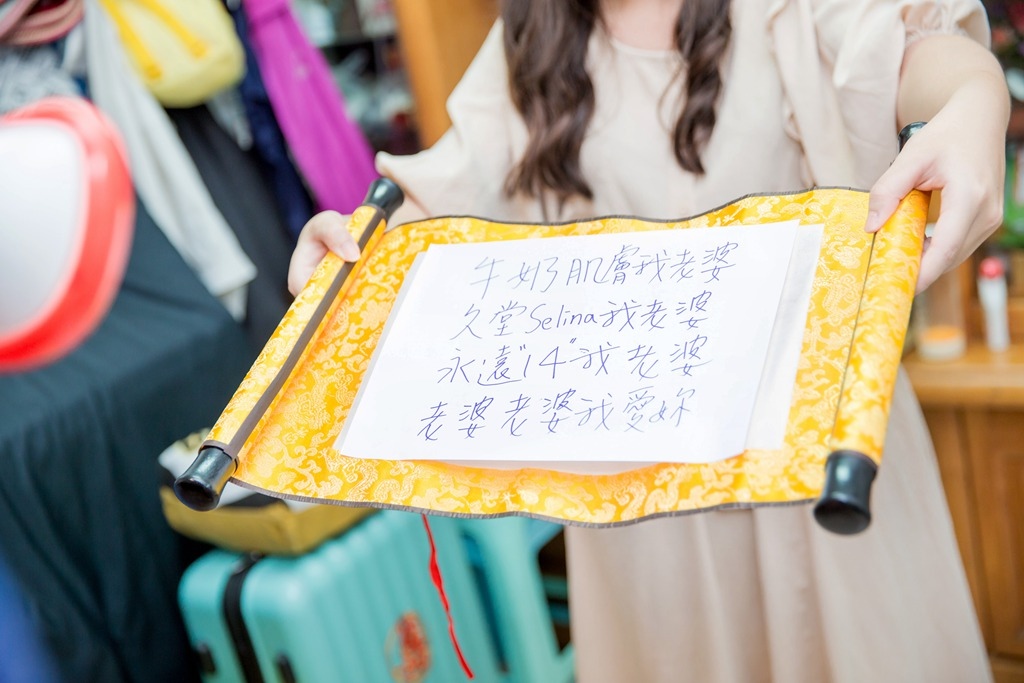 牛奶肌膚我老婆
久堂Selina我老婆
永遠"14"我老婆
老婆老婆我愛妳